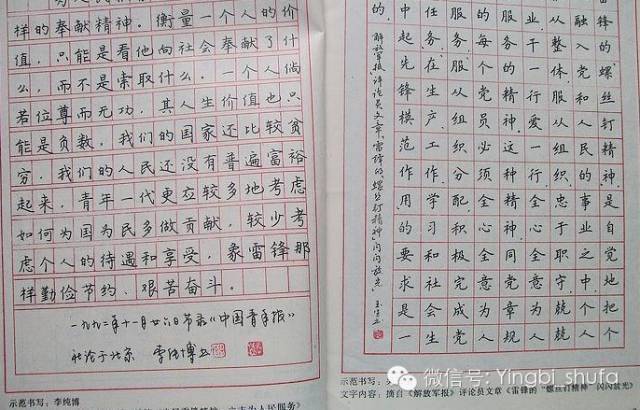 样的奉献精神。衡量一个人的价
值,只能是看他向社会奉献了什
么,而不是索取什么。一个人倘
若位尊而无功,其人生价值也只
能是负数。我们的国家还比较贫
穷,我们的人民还没有普遍富裕
起来,青年一代更应较多地考虑
如何为国为民多做贡献,较少考
虑个人的待遇和享受,象雷锋那
样勤俭节约、艰苦奋斗。
一九九二年十一月廿六日节录《中国青年报》
于北京 李纯博书
示范书写:李纯博
锋的螺丝钉精神,是自觉地把个
融入党和人民的事业之中,个人
从整体,服从组织,忠于职守,兢兢
业,干一行爱一行,全心全意为人
服务的精神。这种精神同党章规
的每个党员必须全心全意为人
服务,服从组织分配,积极完成党
任务,在生产工作学习和社会生
中起先锋模范作用的要求是一
的。
解放军报评论员文章雷锋的“螺丝钉精神”闪闪放光
示范书写:
文字内容:摘自《解放军报》评论员文章《雷锋的“螺丝钉精神”闪闪放光》
微信号: Yingbi_shufa